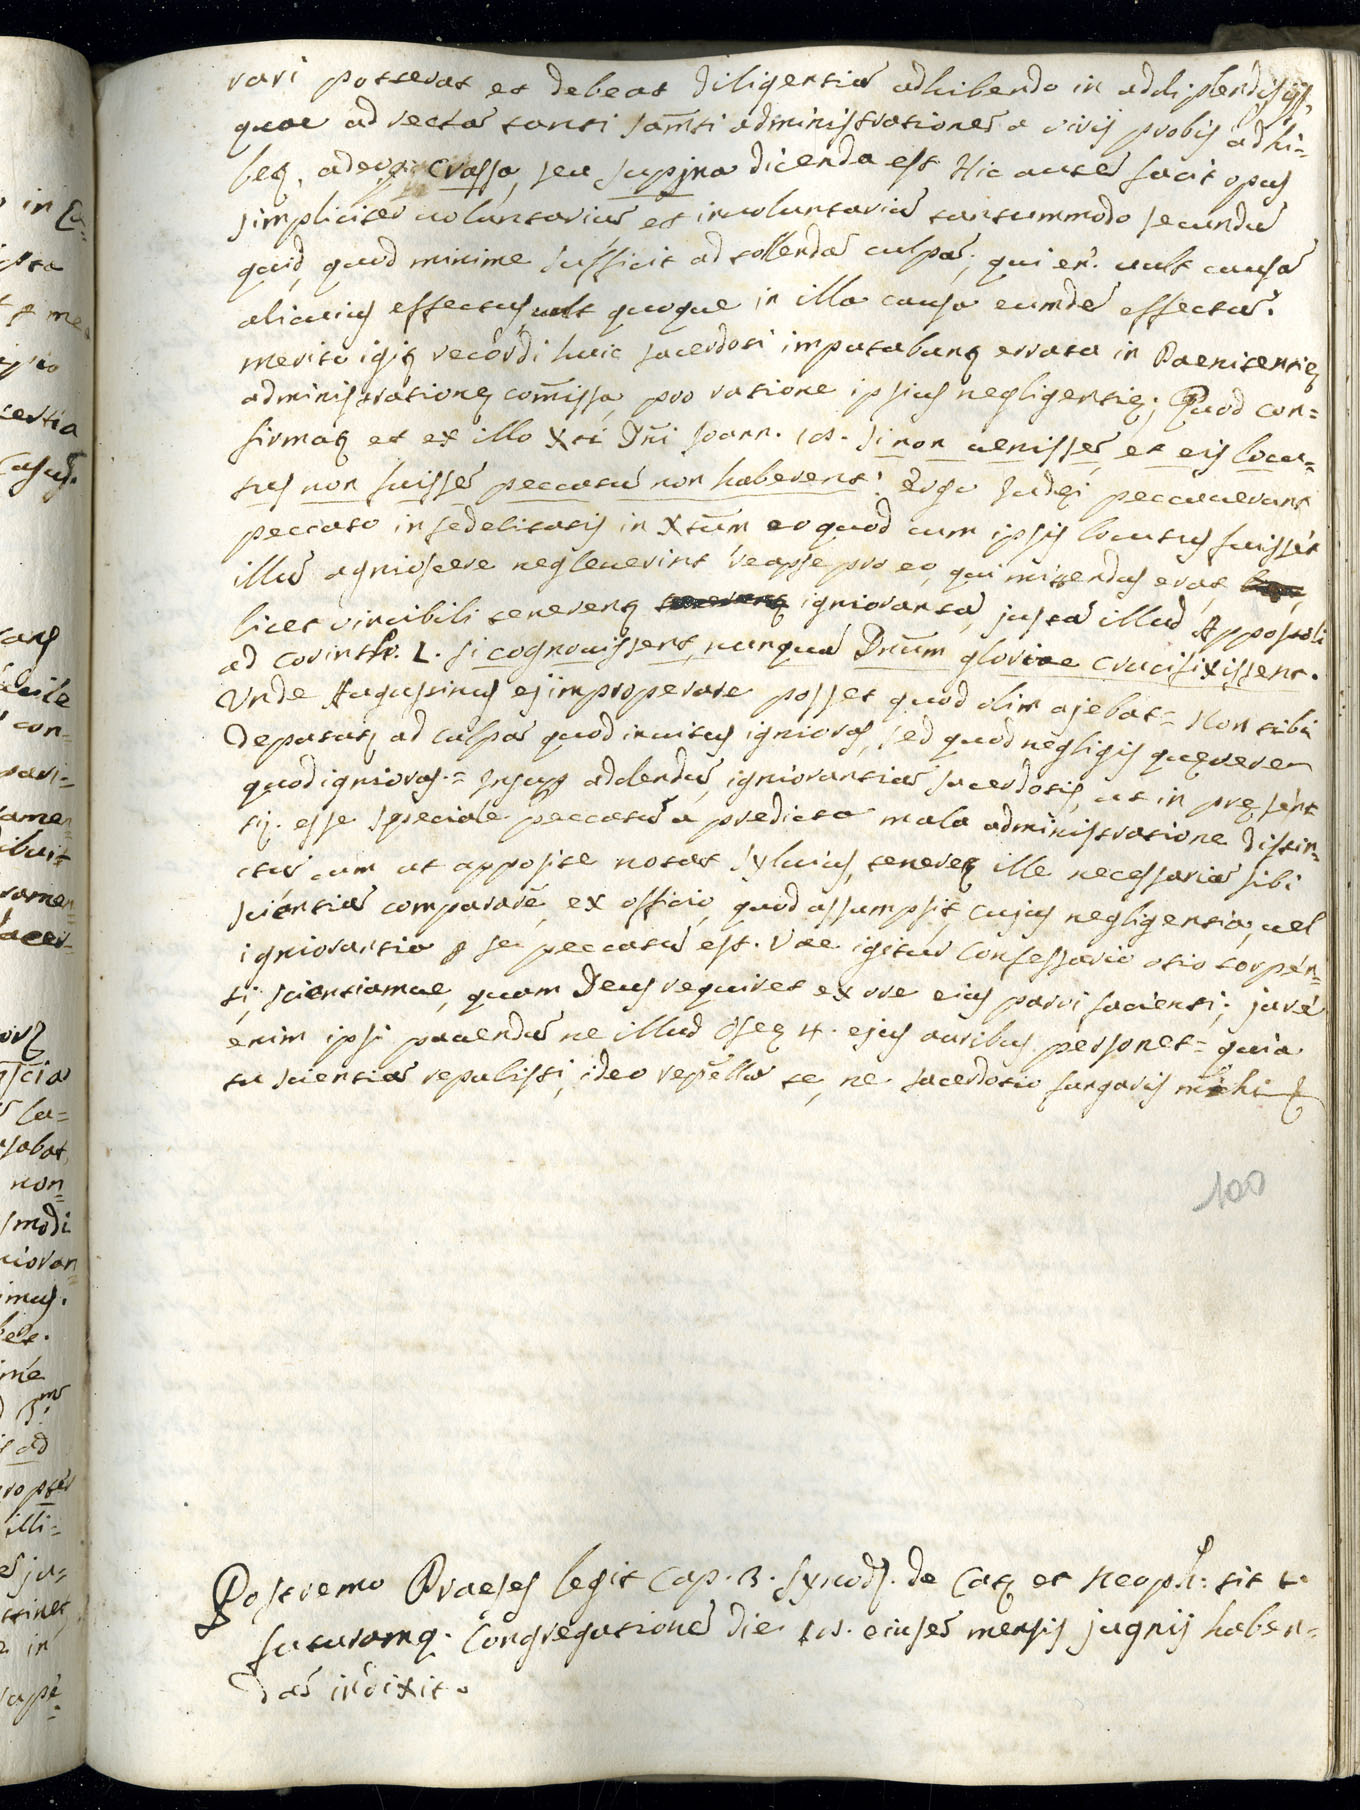 rari potserat et debeat diligentia adhibenda in addiplendis ijs,
quae ad rectã tanti Sam̃ti administrationẽ a viris probis adhi=
betʒ, adeoqʒ crassa, seu supina dicenda est Hic autẽ facit opus
simpliciter voluntariũ et involuntariũ tantummodo secundũ
quid, quod minime sufficit ad tollendã culpã; qui eñ. vult causã
alicuius effectus, vult quoque in illa causa eumdẽ effectũ.
merito igitʒ recordi huic sacerdoti imputabuntʒ errata in Paenitentię
administrationę com̃issa, pro ratione ipsius negligentię; Quod con=
firmatʒ et ex illo Xti Dñi Joann. 15. si non venissẽ, et eis locu=
tus non fuissẽ peccatũ non haberent: ergo Judęi peccauerant
peccato infedelitatis in Xtũm eo quod cum ipsis locutus fuisset
illũ agnioscere neglexerint reapse pro eo, qui mittendus erat,
licet vincibili tenerentʒ igniorantia, justa illud Appostoli
ad Corinth. 2. si cognouissent, nunquã Dnũm gloriae crucifixissent.
Unde Augustinus ei improperare posset quod olim ajebat= Non tibi
deputatʒ ad culpã quod inuitus igniora̧s, sed quod negligis quęrere
quod igniora̧s.= Insupʒ addendũ, igniorantiã sacerdotis, ut in pręsent
tij. esse speciale peccatũ a predicta mala administratione distin=
ctũ cum ut apposite notat Syluius, teneretʒ ille necessariã sibi
scientiã comparare, ex officio, quod assumpsit, cujus negligentia, uel
igniorantia p se peccatũ est. Vae igitur Confessario otio torpen=
ti, scientiamue, quam Deus requiret ex ore eius parvi facienti; jure
enim ipsi pauendũ ne illud Oseę 4. ejus auribus personet= quia
tu scientiã repulisti, ideo repellã te, ne sacerdotio fungaris michi

100

Postremo Praeses legit Cap. 3. Synodi. de Catʒ et Neoph: tit 1.
futuramqʒ. Congregationẽ die 15. eiusẽ mensis jugnij haben=
dã indixit.